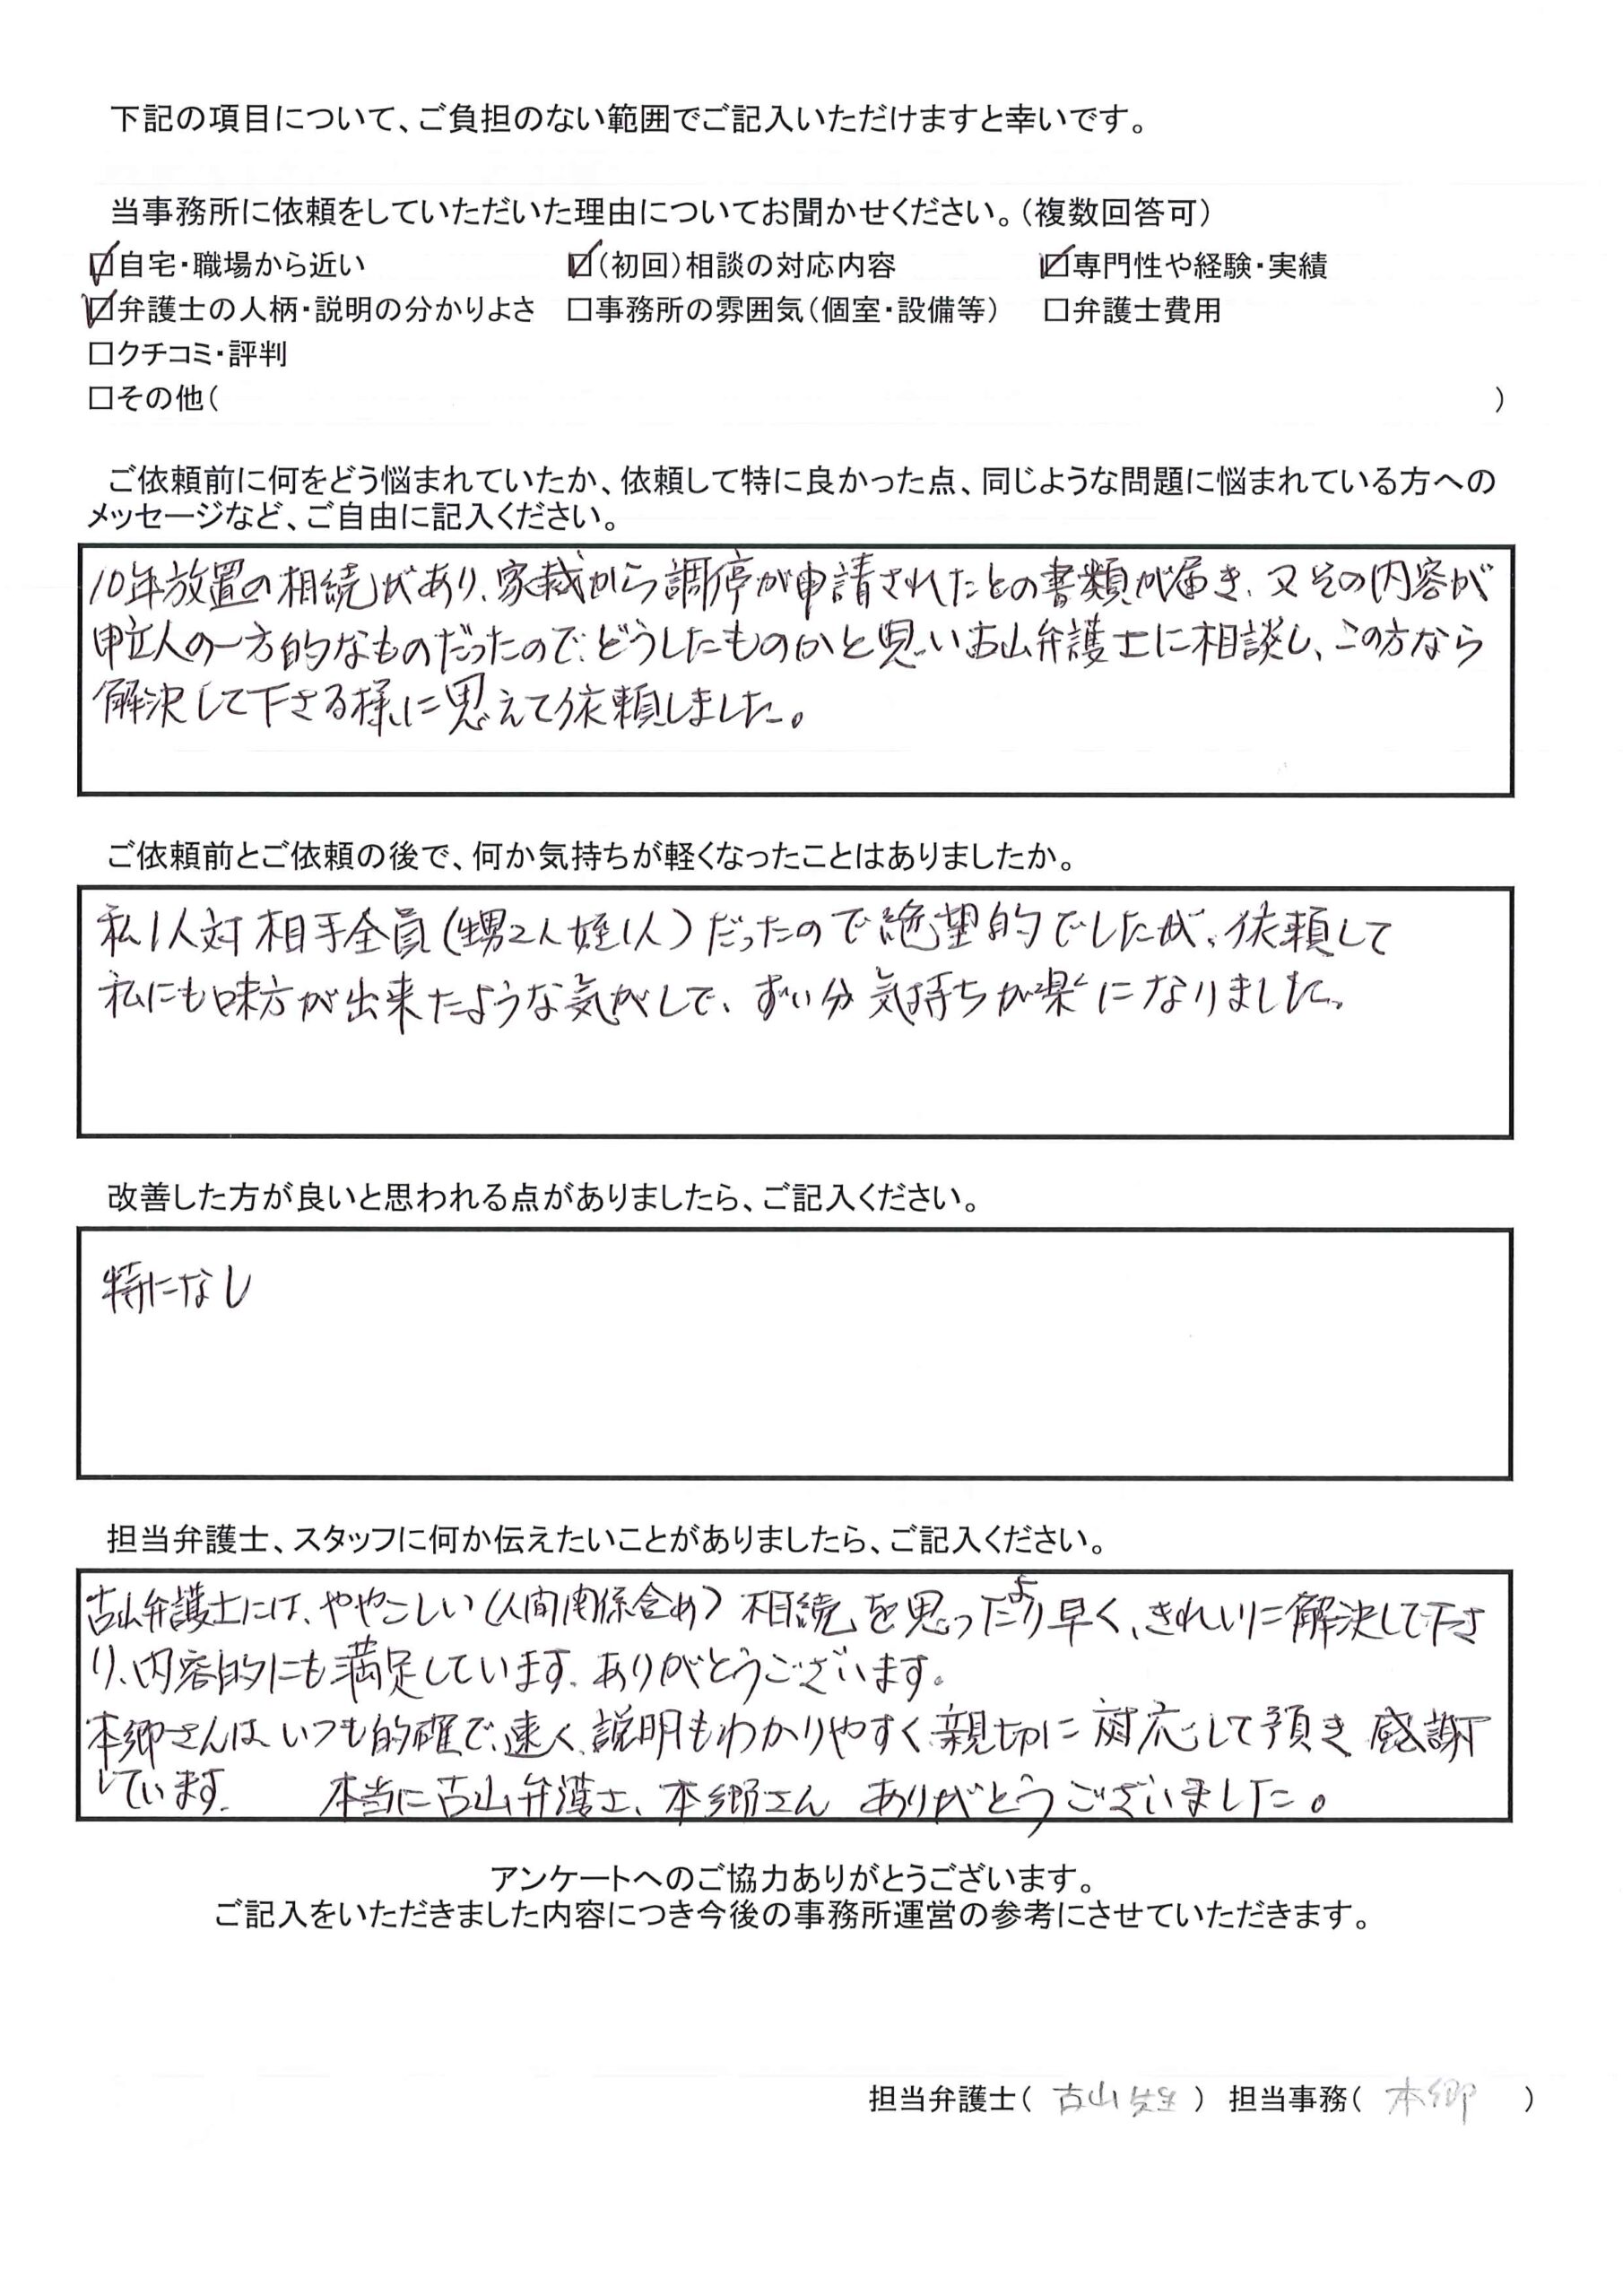 下記の項目について、ご負担のない範囲でご記入いただけますと幸いです。
当事務所に依頼をしていただいた理由についてお聞かせください。（複数回答可）
☑自宅・職場から近い ☑（初回）相談の対応内容 ☑専門性や経験・実績
☑弁護士の人柄・説明の分かりよさ □事務所の雰囲気（個室・設備等） □弁護士費用
□クチコミ・評判
□その他（ ）
ご依頼前に何をどう悩まれていたか、依頼して特に良かった点、同じような問題に悩まれている方への
メッセージなど、ご自由に記入ください。
10年放置の相続があり、家裁から調停が申請されたとの書類が届き、又その内容が
申立人の一方的なものだったので、どうしたものかと思い古山弁護士に相談し、この方なら
解決して下さる様に思えて依頼しました。
ご依頼前とご依頼の後で、何か気持ちが軽くなったことはありましたか。
私1人対相手全員（甥2人姪1人）だったので絶望的でしたが、依頼して
私にも味方が出来たような気がして、ずい分気持ちが楽になりました。
改善した方が良いと思われる点がありましたら、ご記入ください。
特になし
担当弁護士、スタッフに何か伝えたいことがありましたら、ご記入ください。
古山弁護士には、ややこしい（人間関係含め）相続を思ったより早く、きれいに解決して下さ
り、内容的にも満足しています。ありがとうございます。
本郷さんは、いつも的確で、速く、説明もわかりやすく、親切に対応して頂き、感謝
しています。 本当に古山弁護士、本郷さん ありがとうございました。
アンケートへのご協力ありがとうございます。
ご記入をいただきました内容につき今後の事務所運営の参考にさせていただきます。
担当弁護士（ 古山先生 ） 担当事務（ 本郷 ）